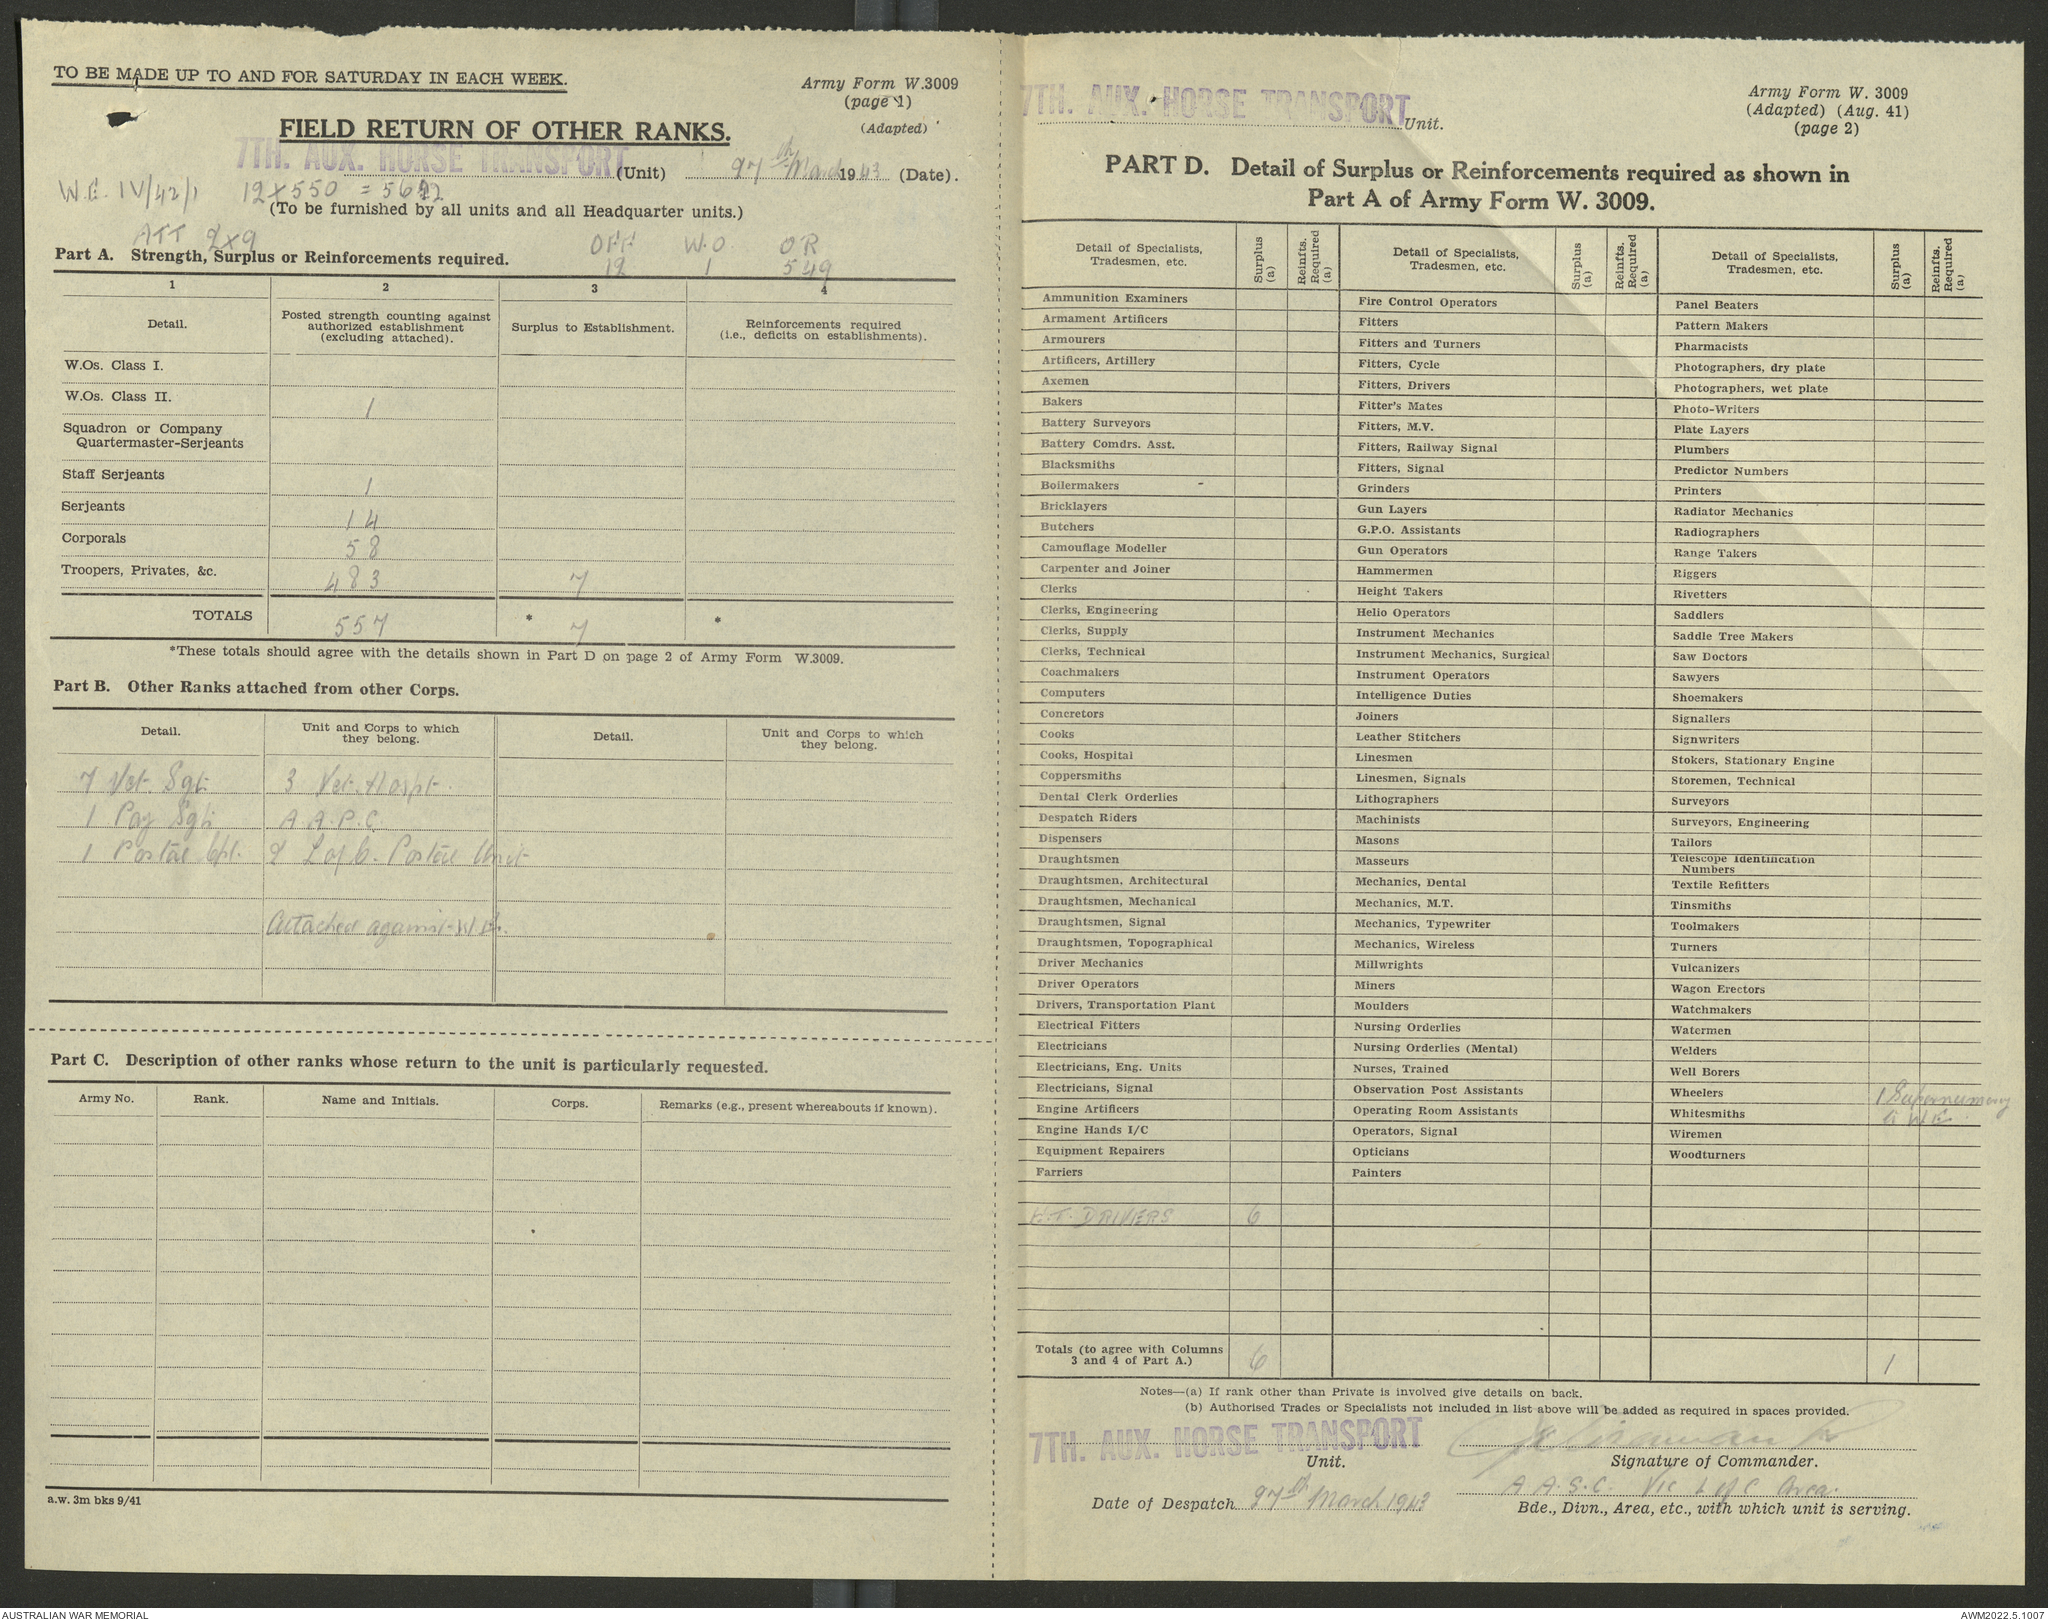 TO BE MADE UP TO AND FOR SATURDAY IN EACH WEEK.
Army Form W.3009
(page 1)
(Adapted)
FIELD RETURN OF OTHER RANKS.
7TH. AUX. HORSE TRANSPORT (Unit) 27th March 1943 (Date).
W.E. IV/42/1 12 X 550 = 562
(To be furnished by all units and all Headquarter units.)
ATT 2X9 OFF W.O. OR
12 1 549
Part A. Strength, Surplus or Reinforcements required.
1 2 3 4
Detail. Posted strength counting against authorized establishment (excluding attached). Surplus to Establishment. Reinforcements required (i.e., deficits on establishments).
W.Os. Class I.
W.Os. Class II. 1
Squadron or Company
Quartermaster-Serjeants
Staff Serjeants 1
Serjeants 14
Corporals 58
Troopers, Privates, &c. 483 7
TOTALS 557 * 7 *
*These totals should agree with the details shown in Part D on page 2 of Army Form W.3009.
Part B. Other Ranks attached from other Corps.
Detail. Unit and Corps to which they belong. Detail. Unit and Corps to which they belong.
7 Vet. Sgts 3 Vet. Hospt.
1 Pay Sgt A.A.P.C.
1 Postal Cpl. 2 L of C. Postal Unit
Attached against W.E.
Part C. Description of other ranks whose return to the unit is particularly requested.
Army No. Rank. Name and Initials. Corps. Remarks (e.g., present whereabouts if known).
a.w. 3m bks 9/41
7TH. AUX. HORSE TRANSPORT Unit.
Army Form W. 3009
(Adapted) (Aug. 41)
(page 2)
PART D. Detail of Surplus or Reinforcements required as shown in
Part A of Army Form W. 3009.
Detail of Specialists, Tradesmen, etc. Surplus (a) Reinfts. Required (a) Detail of Specialists, Tradesmen, etc. Surplus (a) Reinfts. Required (a) Detail of Specialists, Tradesmen, etc. Surplus (a) Reinfts. Required (a)
Ammunition Examiners Fire Control Operators Panel Beaters
Armament Artificers Fitters Pattern Makers
Armourers Fitters and Turners Pharmacists
Artificers, Artillery Fitters, Cycle Photographers, dry plate
Axemen Fitters, Drivers Photographers, wet plate
Bakers Fitter's Mates Photo-Writers
Battery Surveyors Fitters, M.V. Plate Layers
Battery Comdrs. Asst. Fitters, Railway Signal Plumbers
Blacksmiths Fitters, Signal Predictor Numbers
Boilermakers Grinders Printers
Bricklayers Gun Layers Radiator Mechanics
Butchers G.P.O. Assistants Radiographers
Camouflage Modeller Gun Operators Range Takers
Carpenter and Joiner Hammermen Riggers
Clerks Height Takers Rivetters
Clerks, Engineering Helio Operators Saddlers
Clerks, Supply Instrument Mechanics Saddle Tree Makers
Clerks, Technical Instrument Mechanics, Surgical Saw Doctors
Coachmakers Instrument Operators Sawyers
Computers Intelligence Duties Shoemakers
Concretors Joiners Signallers
Cooks Leather Stitchers Signwriters
Cooks, Hospital Linesmen Stokers, Stationary Engine
Coppersmiths Linesmen, Signals Storemen, Technical
Dental Clerk Orderlies Lithographers Surveyors
Despatch Riders Machinists Surveyors, Engineering
Dispensers Masons Tailors
Draughtsmen Masseurs Telescope Identification Numbers
Draughtsmen, Architectural Mechanics, Dental Textile Refitters
Draughtsmen, Mechanical Mechanics, M.T. Tinsmiths
Draughtsmen, Signal Mechanics, Typewriter Toolmakers
Draughtsmen, Topographical Mechanics, Wireless Turners
Driver Mechanics Millwrights Vulcanizers
Driver Operators Miners Wagon Erectors
Drivers, Transportation Plant Moulders Watchmakers
Electrical Fitters Nursing Orderlies Watermen
Electricians Nursing Orderlies (Mental) Welders
Electricians, Eng. Units Nurses, Trained Well Borers
Electricians, Signal Observation Post Assistants Wheelers 1 Supernumery
Engine Artificers Operating Room Assistants Whitesmiths to W.E.
Engine Hands I/C Operators, Signal Wiremen
Equipment Repairers Opticians Woodturners
Farriers Painters
H.T. DRIVERS 6
Totals (to agree with Columns 3 and 4 of Part A.) 6 1
Notes—(a) If rank other than Private is involved give details on back.
(b) Authorised Trades or Specialists not included in list above will be added as required in spaces provided.
7TH. AUX. HORSE TRANSPORT
Unit. Signature of Commander.
A.A.S.C. Vic L of C Area.
Date of Despatch 27th March 1943 Bde., Divn., Area, etc., with which unit is serving.
AUSTRALIAN WAR MEMORIAL AWM2022.5.1007